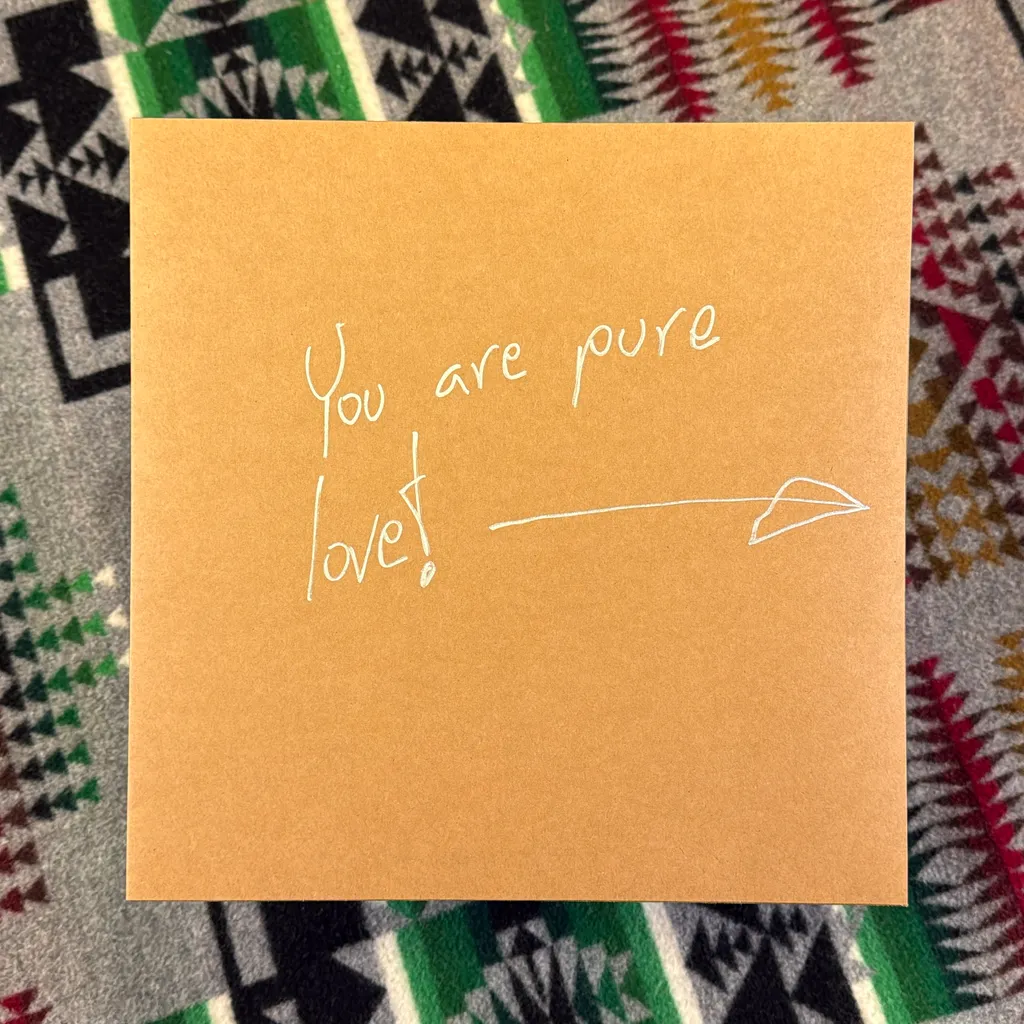 You are pure
love!